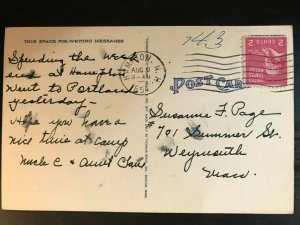 THIS SPACE FOR WRITING MESSAGES
Spending the week
end at Hampton
Went to Portland
yesterday—
Hope you have a
nice time at camp
Uncle C & Aunt
HAMPTON, N.H.
AUG 9
9-AM
2 CENTS 2
POST CARD
Susanne F. Page
#701 Summer St.
Weymouth
Mass.